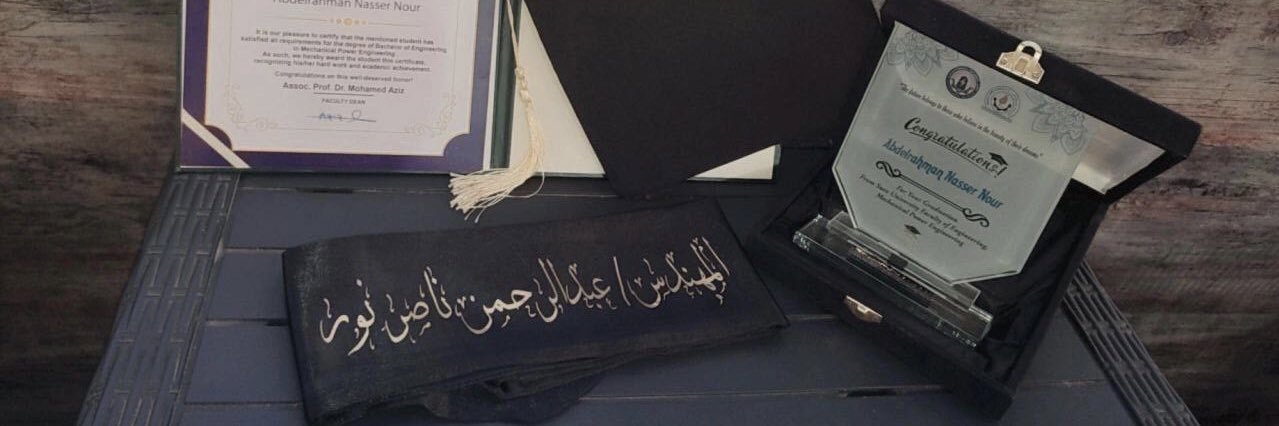 Abdelrahman Nasser Nour
It is our pleasure to certify that the mentioned student has
satisfied all requirements for the degree of Bachelor of Engineering
in Mechanical Power Engineering
As such, we hereby award the student this certificate,
recognizing his/her hard work and academic achievement.
Congratulations on this well-deserved honor!
Assoc. Prof. Dr. Mohamed Aziz
FACULTY DEAN
"The future belongs to those who believe in the beauty of their dreams"
Congratulations!
Abdelrahman Nasser Nour
For Your Graduation
From Suez University, Faculty of Engineering,
Mechanical Power Engineering
المهندس / عبدالرحمن ناصر نور